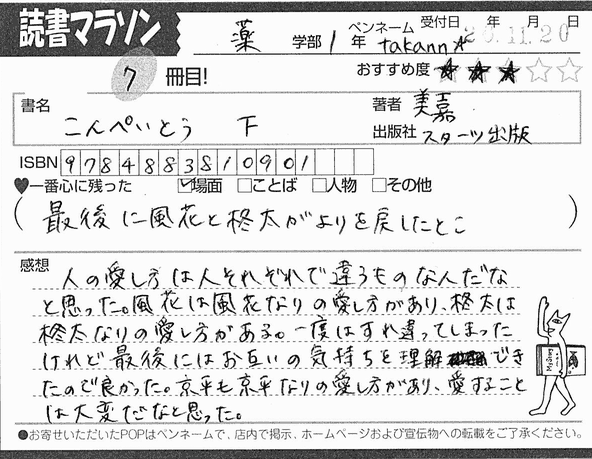 読書マラソン
薬 学部 1 年 ペンネーム takann☆ 受付日 年 月 日 20.11.20
7 冊目! おすすめ度 ★★★☆☆
書名 著者 美嘉
こんぺいとう 下 出版社 スターツ出版
ISBN 9784883810901
♥一番心に残った ☑場面 □ことば □人物 □その他
(最後に風花と柊太がよりを戻したとこ)
感想
人の愛し方は人それぞれで違うものなんだな
と思った。風花は風花なりの愛し方があり、柊太は
柊太なりの愛し方がある。一度はすれ違ってしまった
けれど最後にはお互いの気持ちを理解でき
たので良かった。京平も京平なりの愛し方があり、愛すること
は大変だなと思った。
●お寄せいただいたPOPはペンネームで、店内で掲示、ホームページおよび宣伝物への転載をご了承ください。